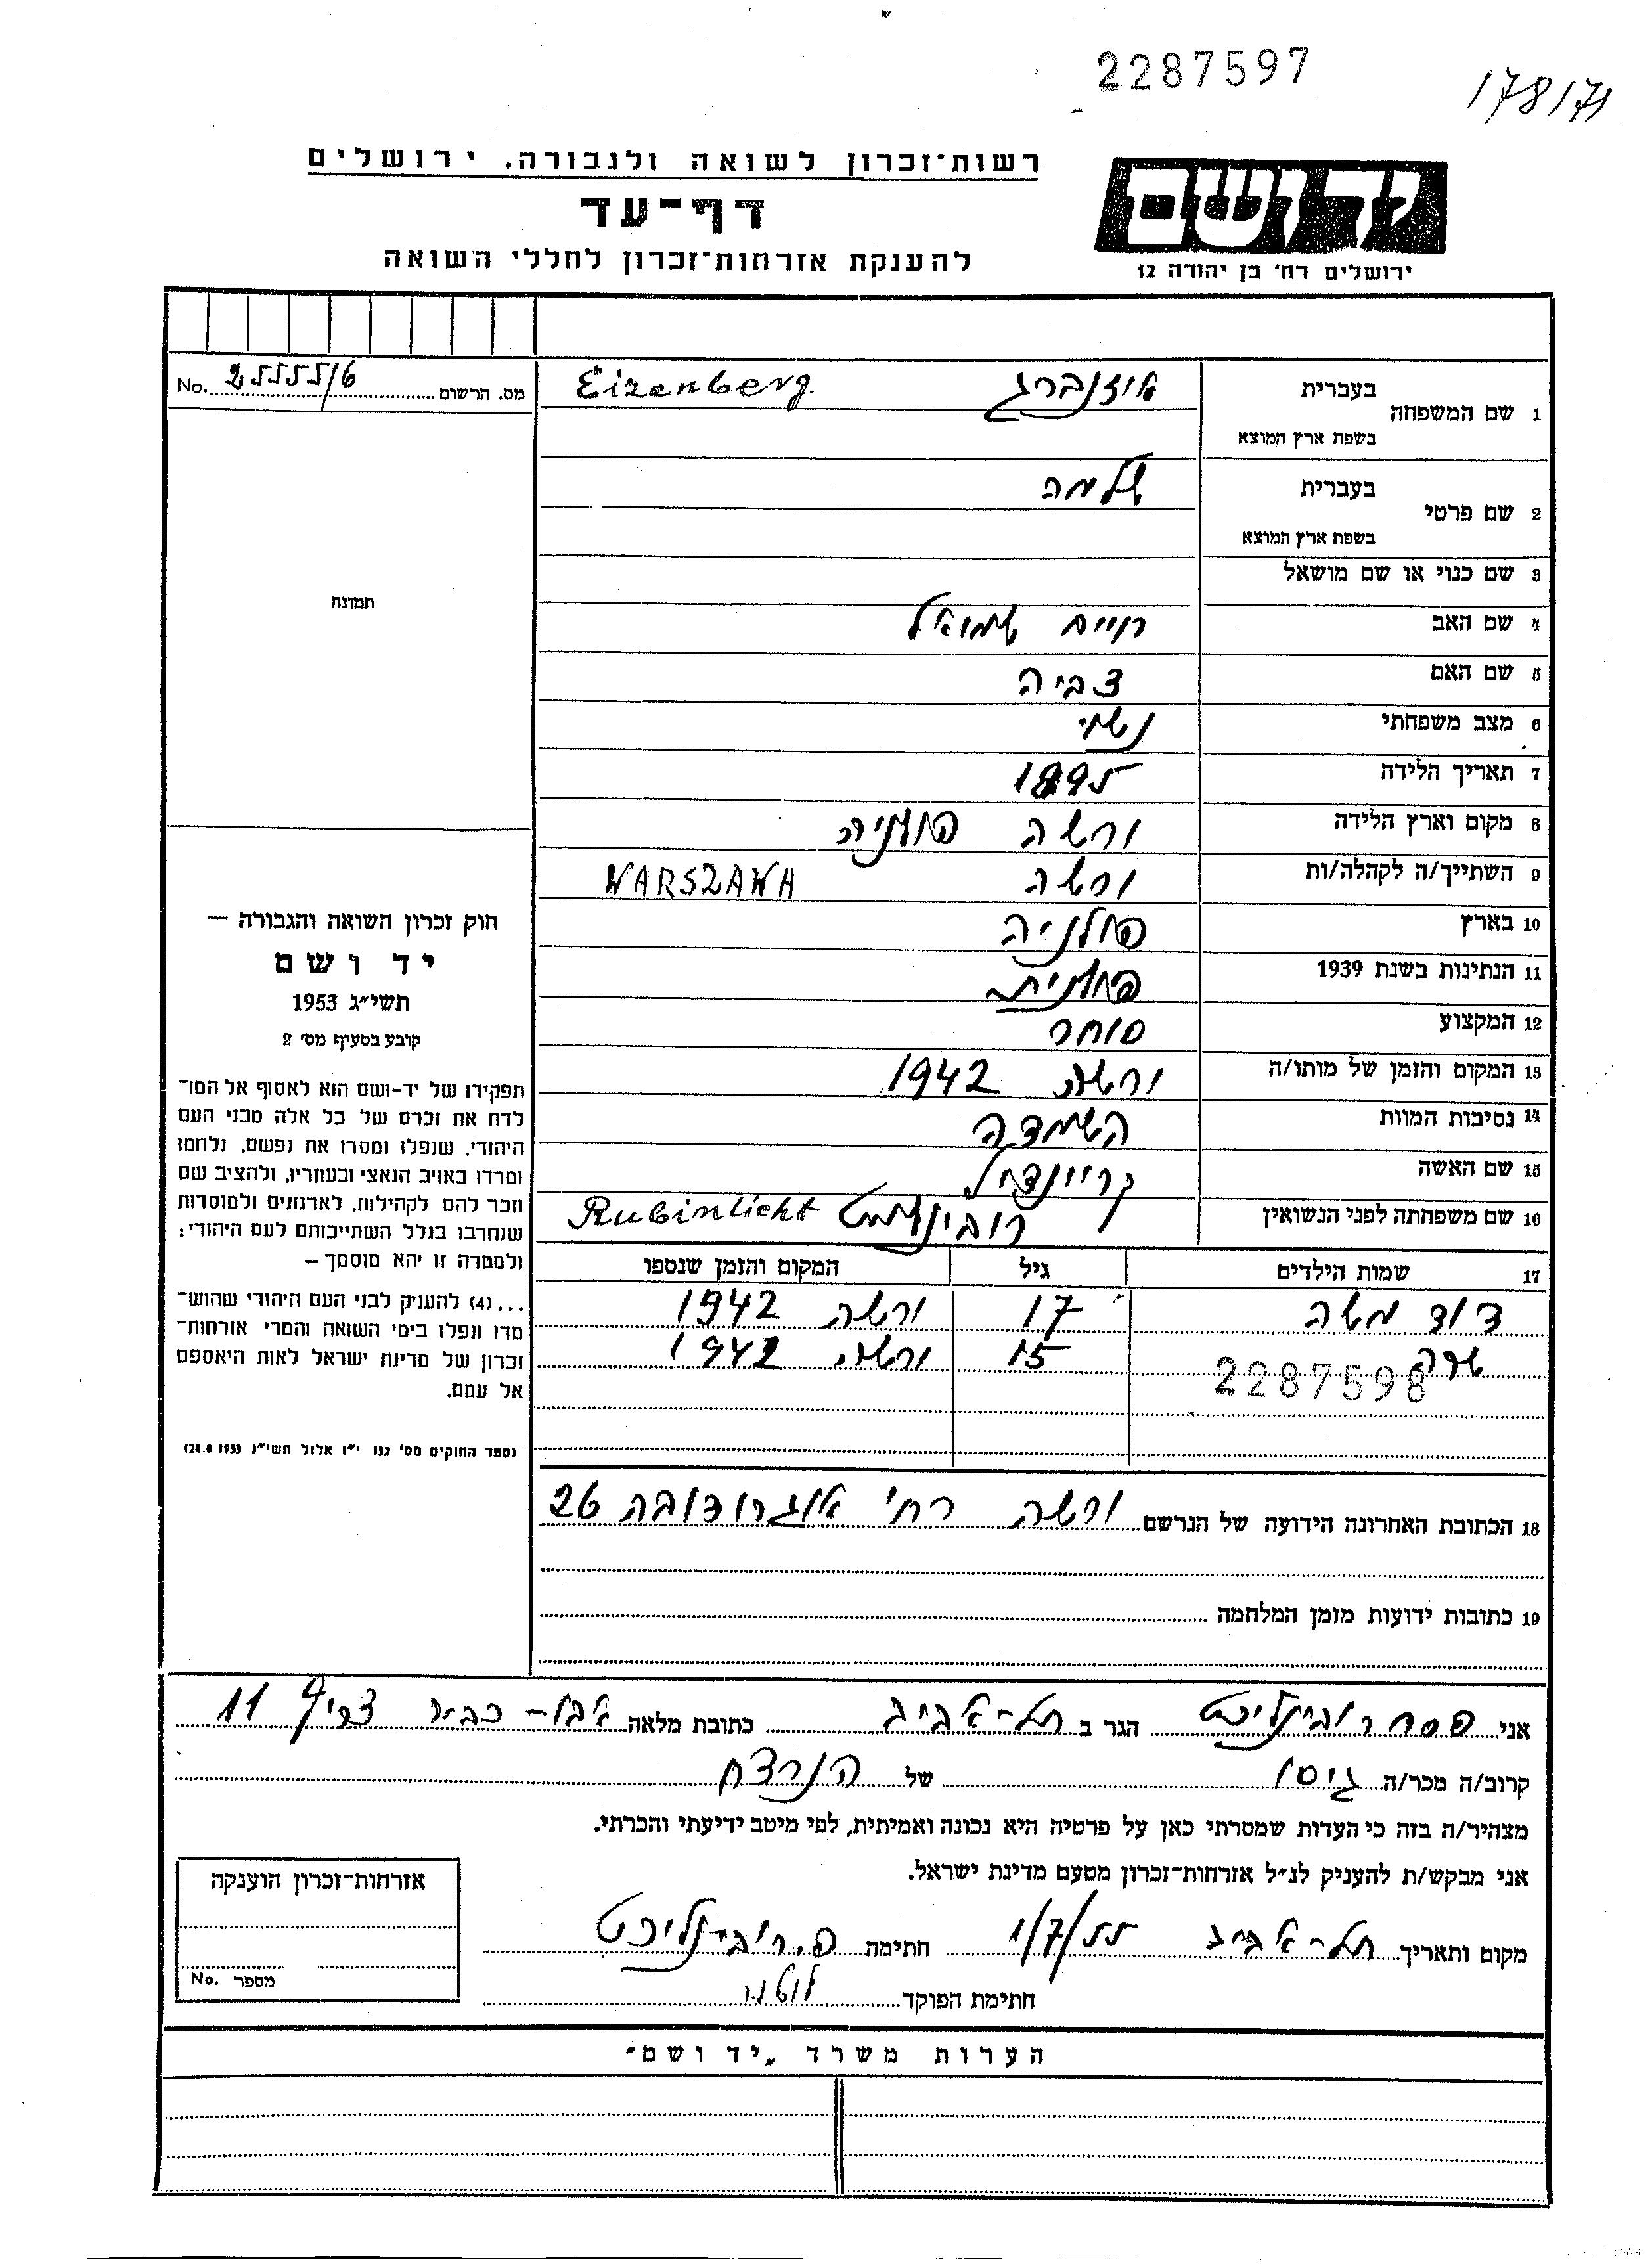 2287597
178171
רשות־זכרון לשואה ולגבורה, ירושלים
דף־עד
להענקת אזרחות־זכרון לחללי השואה
יד ושם
ירושלים רח' בן יהודה 12
מס. הרשום No. 25555/6
תמונה
1 שם המשפחה בעברית איזנברג Eizenberg
בשפת ארץ המוצא
2 שם פרטי בעברית שלמה
בשפת ארץ המוצא
3 שם כנוי או שם מושאל
4 שם האב חיים שמואל
5 שם האם צביה
6 מצב משפחתי נשוי
7 תאריך הלידה 1895
8 מקום וארץ הלידה ורשה פולניה
9 השתייך/ה לקהלה/ות ורשה WARSZAWA
10 בארץ פולניה
11 הנתינות בשנת 1939 פולנית
12 המקצוע סוחר
13 המקום והזמן של מותו/ה ורשה 1942
14 נסיבות המוות השמדה
15 שם האשה קריינדיל
16 שם משפחתה לפני הנשואין רובינליכט Rubinlicht
17 שמות הילדים גיל המקום והזמן שנספו
דוד משה 17 ורשה 1942
שרה 15 ורשה 1942
2287598
18 הכתובת האחרונה הידועה של הנרשם ורשה רח' אוגרודובה 26
19 כתובות ידועות מזמן המלחמה
חוק זכרון השואה והגבורה —
יד ושם
תשי"ג 1953
קובע בסעיף מס' 2
תפקידו של יד-ושם הוא לאסוף אל המו־
לדת את זכרם של כל אלה מבני העם
היהודי, שנפלו ומסרו את נפשם, נלחמו
ומרדו באויב הנאצי ובעוזריו, ולהציב שם
וזכר להם לקהילות, לארגונים ולמוסדות
שנחרבו בגלל השתייכותם לעם היהודי;
ולמטרה זו יהא מוסמך –
...(4) להעניק לבני העם היהודי שהוש־
מדו ונפלו בימי השואה והמרי אזרחות־
זכרון של מדינת ישראל לאות היאספם
אל עמם.
(ספר החוקים מס' 132 י"ז אלול תשי"ג 28.8.1953)
אני פסח רובינליכט הגר ב תל-אביב כתובת מלאה אבו-כביר צריף 11
קרוב/ה מכר/ה גיסו של הנרצח
מצהיר/ה בזה כי העדות שמסרתי כאן על פרטיה היא נכונה ואמיתית, לפי מיטב ידיעתי והכרתי.
אני מבקש/ת להעניק לנ"ל אזרחות־זכרון מטעם מדינת ישראל.
מקום ותאריך תל-אביב 1/7/55 חתימה פ. רובינליכט
חתימת הפוקד
אזרחות־זכרון הוענקה
מספר No.
הערות משרד „יד ושם"